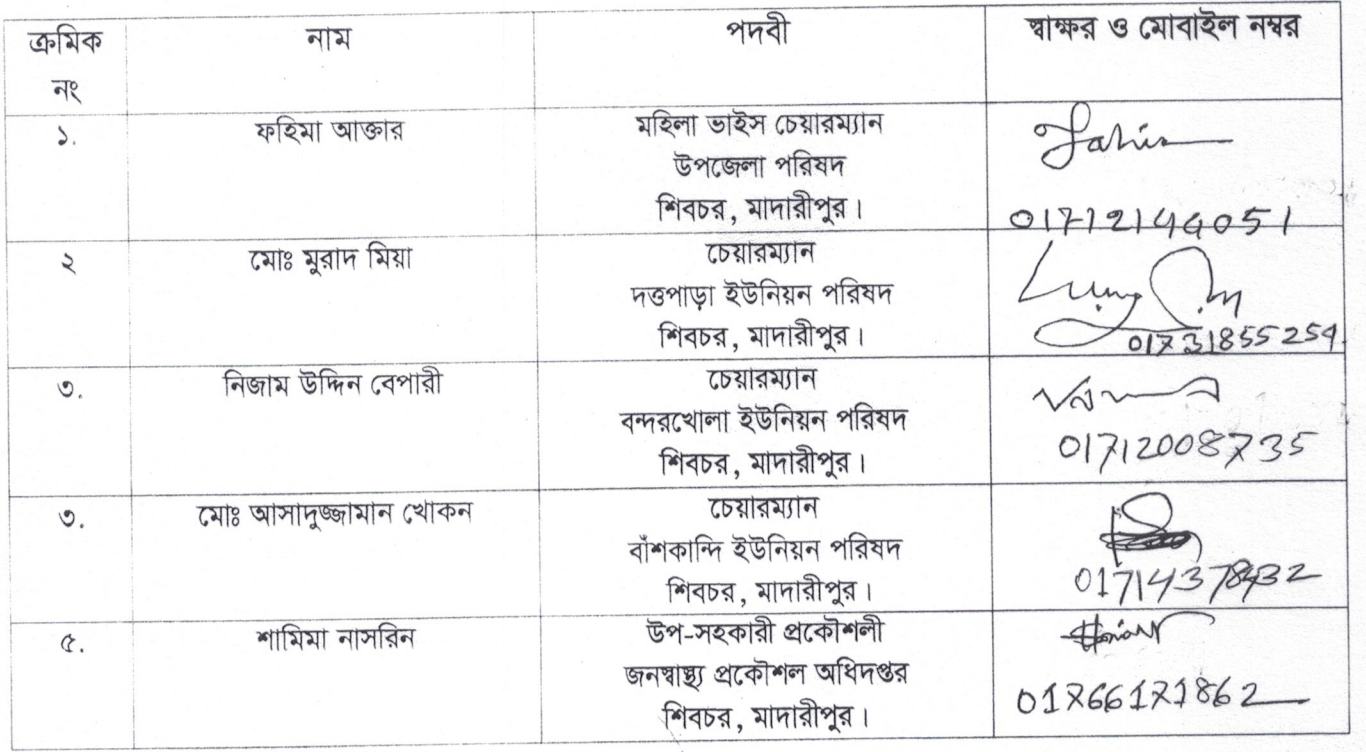 ক্রমিক নং	নাম	পদবী	স্বাক্ষর ও মোবাইল নম্বর
১.	ফহিমা আক্তার	মহিলা ভাইস চেয়ারম্যান
উপজেলা পরিষদ
শিবচর, মাদারীপুর।
01712144051
২	মোঃ মুরাদ মিয়া	চেয়ারম্যান
দত্তপাড়া ইউনিয়ন পরিষদ
শিবচর, মাদারীপুর।
01731855254
৩.	নিজাম উদ্দিন বেপারী	চেয়ারম্যান
বন্দরখোলা ইউনিয়ন পরিষদ
শিবচর, মাদারীপুর।
01712008735
৩.	মোঃ আসাদুজ্জামান খোকন	চেয়ারম্যান
বাঁশকান্দি ইউনিয়ন পরিষদ
শিবচর, মাদারীপুর।
01714378432
৫.	শামিমা নাসরিন	উপ-সহকারী প্রকৌশলী
জনস্বাস্থ্য প্রকৌশল অধিদপ্তর
শিবচর, মাদারীপুর।
01766171862